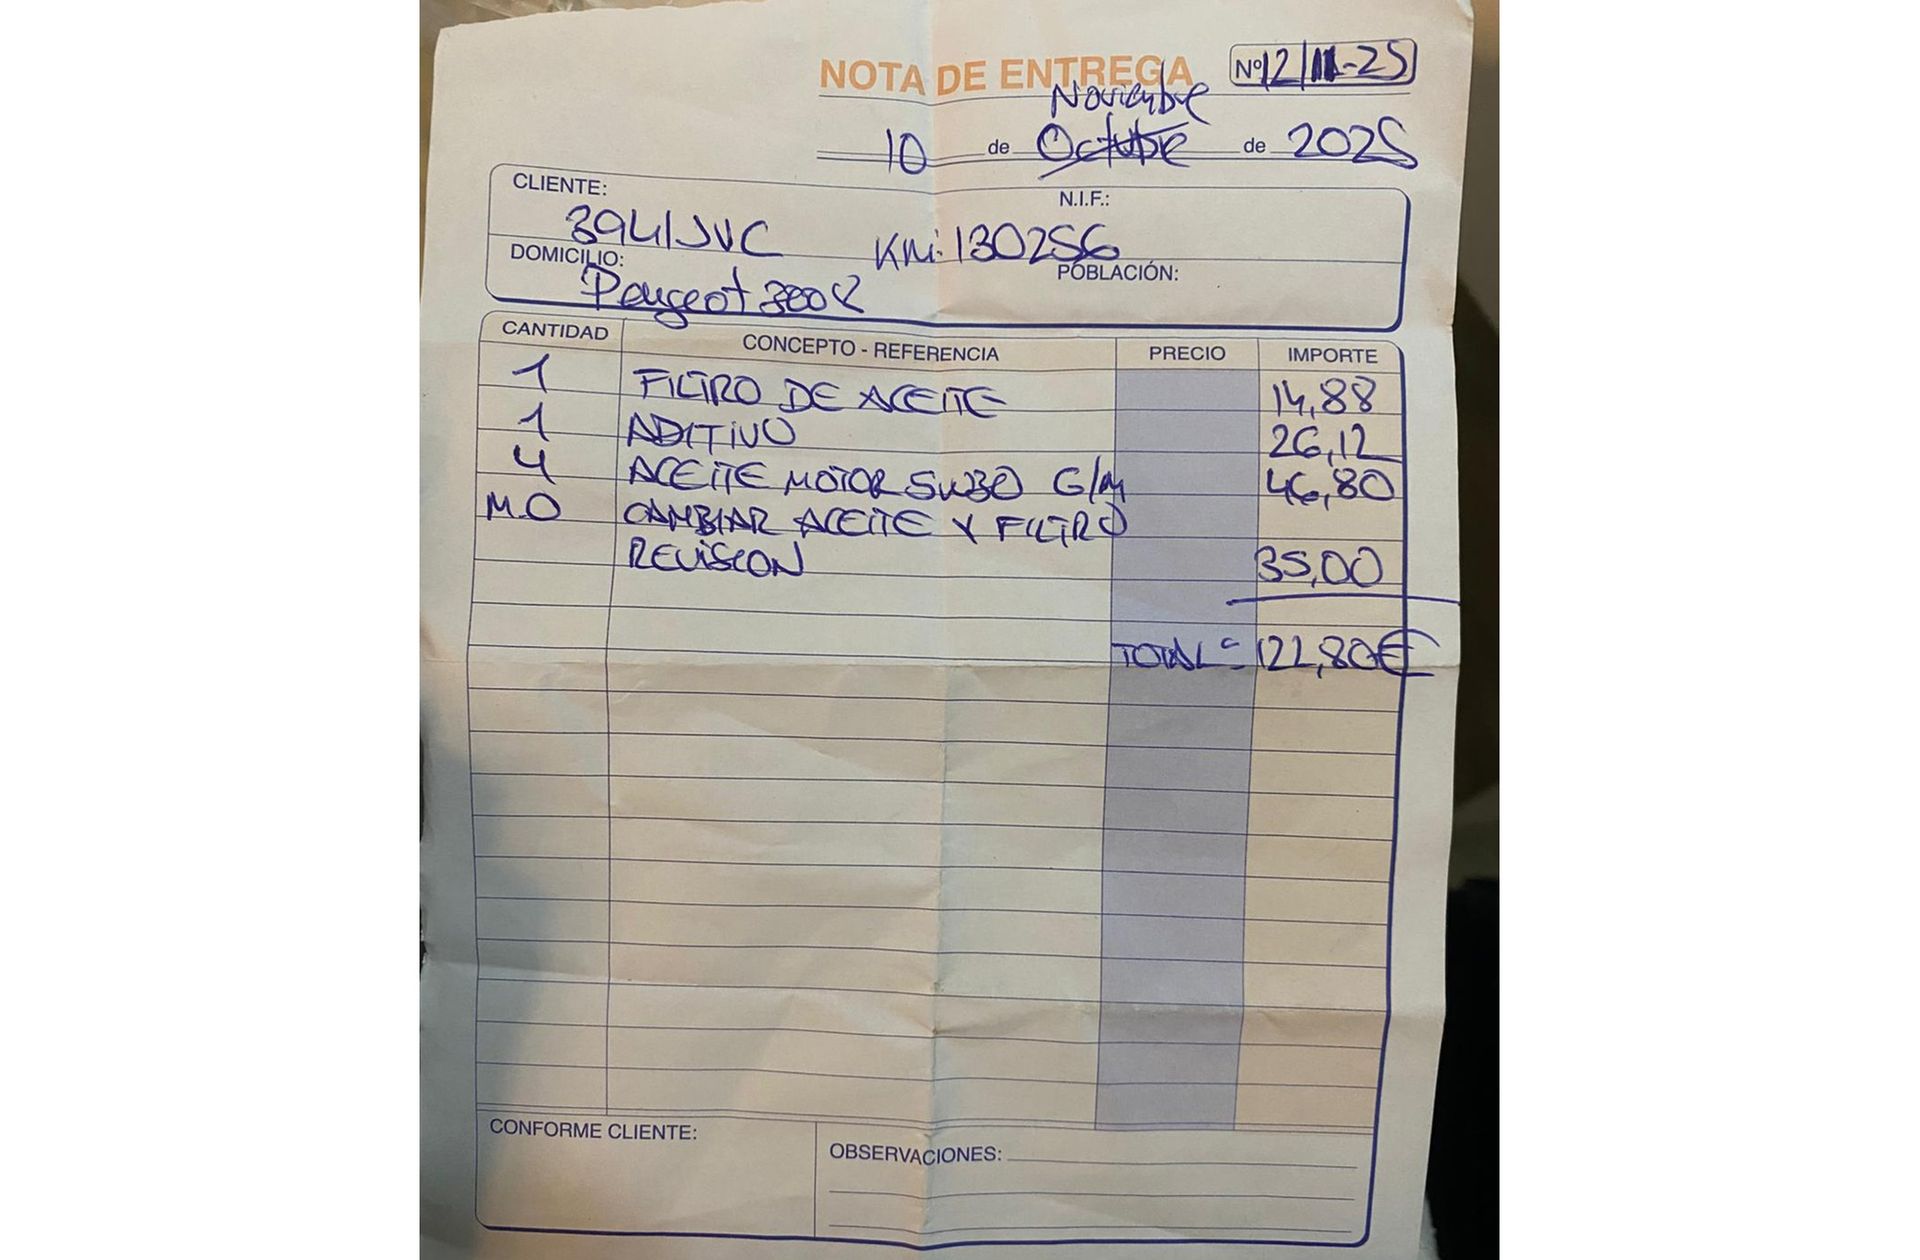 NOTA DE ENTREGA
Nº 12/11-25
Noviembre
10 de Octubre de 2025
CLIENTE: N.I.F.:
3941JVC KM: 130256
DOMICILIO: POBLACIÓN:
Peugeot 3008
CANTIDAD CONCEPTO - REFERENCIA PRECIO IMPORTE
1 FILTRO DE ACEITE 14,88
1 ADITIVO 26,12
4 ACEITE MOTOR 5W30 G/M 46,80
M.O CAMBIAR ACEITE Y FILTRO
REVISION 35,00
TOTAL = 122,80€
CONFORME CLIENTE:
OBSERVACIONES: